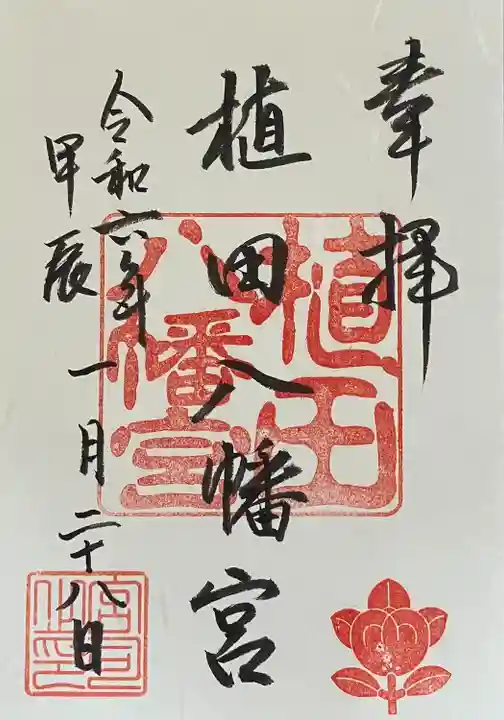 奉拝
植田八幡宮
令和六年
甲辰
一月二十八日
植田八幡宮